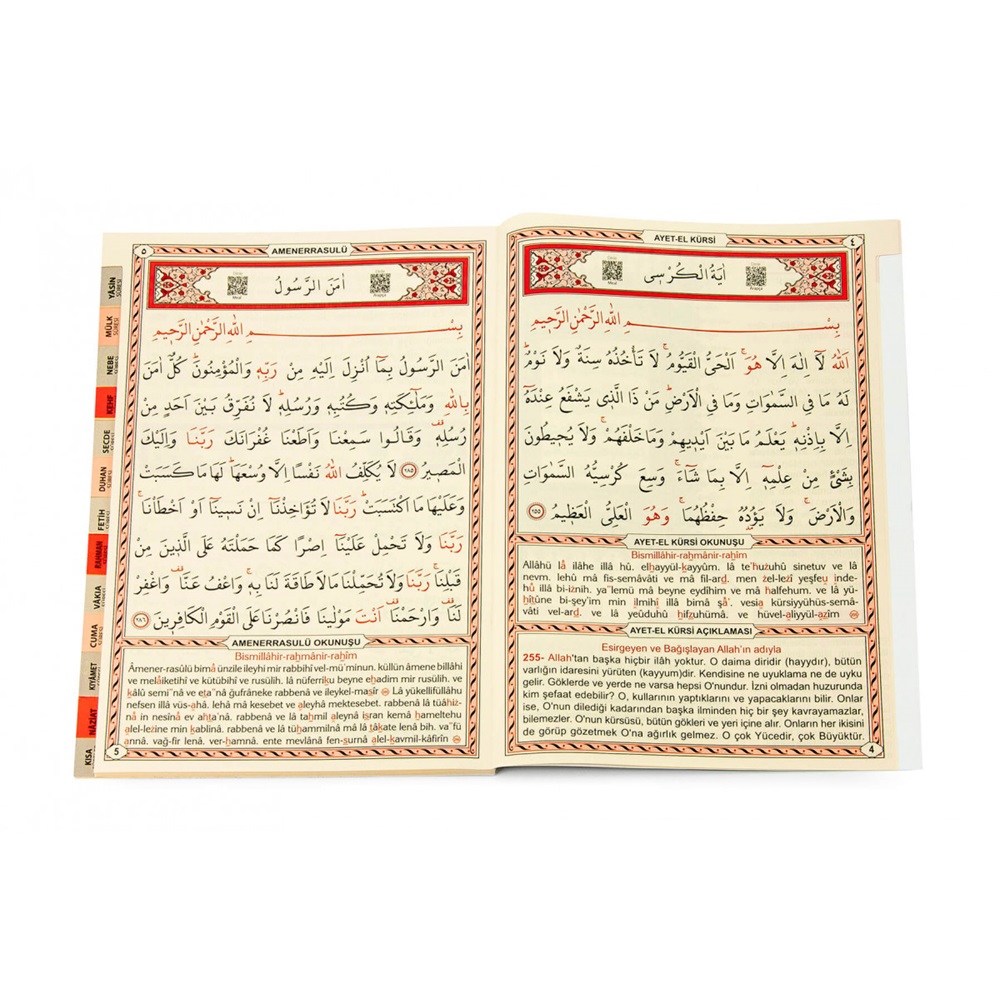 AYET-EL KÜRSİ
٤
اٰيَةُ الْكُرْسِى
بِسْــــــــمِ اللّٰهِ الرَّحْمٰنِ الرَّحِيمِ
اَللّٰهُ لَٓا اِلٰهَ اِلَّا هُوَۚ اَلْحَىُّ الْقَيُّومُۚ لَا تَأْخُذُهُ سِنَةٌ وَلَا نَوْمٌۜ
لَهُ مَا فِى السَّمٰوَاتِ وَمَا فِى الْاَرْضِۜ مَنْ ذَا الَّذ۪ى يَشْفَعُ عِنْدَهُٓ
اِلَّا بِاِذْنِه۪ۜ يَعْلَمُ مَا بَيْنَ اَيْد۪يهِمْ وَمَا خَلْفَهُمْۚ وَلَا يُح۪يطُونَ
بِشَىْءٍ مِنْ عِلْمِه۪ٓ اِلَّا بِمَا شَٓاءَۚ وَسِعَ كُرْسِيُّهُ السَّمٰوَاتِ
وَالْاَرْضَۚ وَلَا يَؤُ۫دُهُ حِفْظُهُمَاۚ وَهُوَ الْعَلِىُّ الْعَظ۪يمُ ٢٥٥
AYET-EL KÜRSİ OKUNUŞU
Bismillâhir-rahmânir-rahîm
Allâhü lâ ilâhe illâ hû. elhayyül-kayyûm. lâ te'huzuhû sinetuv ve lâ
nevm. lehû mâ fis-semâvâti ve mâ fil-ard. men zel-lezî yeşfeu inde-
hû illâ bi-iznih. ya˝lemü mâ beyne eydîhim ve mâ halfehum. ve lâ yü-
hîtûne bi-şey'im min ilmihî illâ bimâ şâ'. vesia kürsiyyühüs-semâ-
vâti vel-ard. ve lâ yeûduhû hifzuhümâ. ve hüvel-aliyyül-azîm
AYET-EL KÜRSİ AÇIKLAMASI
Esirgeyen ve Bağışlayan Allah'ın adıyla
255- Allah'tan başka hiçbir ilâh yoktur. O daima diridir (hayydır), bütün
varlığın idaresini yürüten (kayyum)dir. Kendisine ne uyuklama ne de uyku
gelir. Göklerde ve yerde ne varsa hepsi O'nundur. İzni olmadan huzurunda
kim şefaat edebilir? O, kullarının yaptıklarını ve yapacaklarını bilir. Onlar
ise, O'nun dilediği kadarından başka ilminden hiç bir şey kavrayamazlar,
bilemezler. O'nun kürsüsü, bütün gökleri ve yeri içine alır. Onların her ikisini
de görüp gözetmek O'na ağırlık gelmez. O çok Yücedir, çok Büyüktür.
4
٥
AMENERRASULÜ
اٰمَنَ الرَّسُولُ
بِسْــــــــمِ اللّٰهِ الرَّحْمٰنِ الرَّحِيمِ
اٰمَنَ الرَّسُولُ بِمَٓا اُنْزِلَ اِلَيْهِ مِنْ رَبِّه۪ وَالْمُؤْمِنُونَۜ كُلٌّ اٰمَنَ
بِاللّٰهِ وَمَلٰٓئِكَتِه۪ وَكُتُبِه۪ وَرُسُلِه۪ۜ لَا نُفَرِّقُ بَيْنَ اَحَدٍ مِنْ
رُسُلِه۪۠ وَقَالُوا سَمِعْنَا وَاَطَعْنَا غُفْرَانَكَ رَبَّنَا وَاِلَيْكَ
الْمَص۪يرُ ٢٨٥ لَا يُكَلِّفُ اللّٰهُ نَفْسًا اِلَّا وُسْعَهَاۜ لَهَا مَا كَسَبَتْ
وَعَلَيْهَا مَا اكْتَسَبَتْۜ رَبَّنَا لَا تُؤَاخِذْنَٓا اِنْ نَس۪ينَٓا اَوْ اَخْطَأْنَاۚ
رَبَّنَا وَلَا تَحْمِلْ عَلَيْنَٓا اِصْرًا كَمَا حَمَلْتَهُ عَلَى الَّذ۪ينَ مِنْ
قَبْلِنَاۚ رَبَّنَا وَلَا تُحَمِّلْنَا مَا لَا طَاقَةَ لَنَا بِه۪ۚ وَاعْفُ عَنَّا۠ وَاغْفِرْ
لَنَا۠ وَارْحَمْنَا۠ اَنْتَ مَوْلٰينَا فَانْصُرْنَا عَلَى الْقَوْمِ الْكَافِر۪ينَ ٢٨٦
AMENERRASULÜ OKUNUŞU
Bismillâhir-rahmânir-rahîm
Âmener-rasûlü bimâ ünzile ileyhi mir rabbihî vel-mü'minun. küllün âmene billâhi
ve melâiketihî ve kütübihî ve rusülih. lâ nüferriku beyne ehadim mir rusülih. ve
kâlû semi˝nâ ve eta˝nâ ğufrâneke rabbenâ ve ileykel-masîr Lâ yükellifüllâhu
nefsen illâ vüs-ahâ. lehâ mâ kesebet ve aleyhâ mektesebet. rabbenâ lâ tüâhiz-
nâ in nesînâ ev ahta'nâ. rabbenâ ve lâ tahmil aleynâ isran kemâ hameltehu
alel-lezîne min kablinâ. rabbenâ ve lâ tühammilnâ mâ lâ tâkate lenâ bih. va˝fü
annâ. vağ-fir lenâ. ver-hamnâ. ente mevlânâ fen-surnâ alel-kavmil-kâfirîn
5
YÂSİN
SÛRESİ
MÜLK
SÛRESİ
NEBE
KEHF
SECDE
DUHAN
FETİH
RAHMAN
VÂKIA
CUMA
KIYÂMET
NÂZİAT
KISA